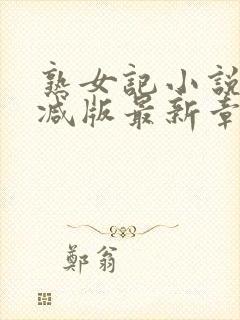 熟女記小說
減版最新章
鄭翁